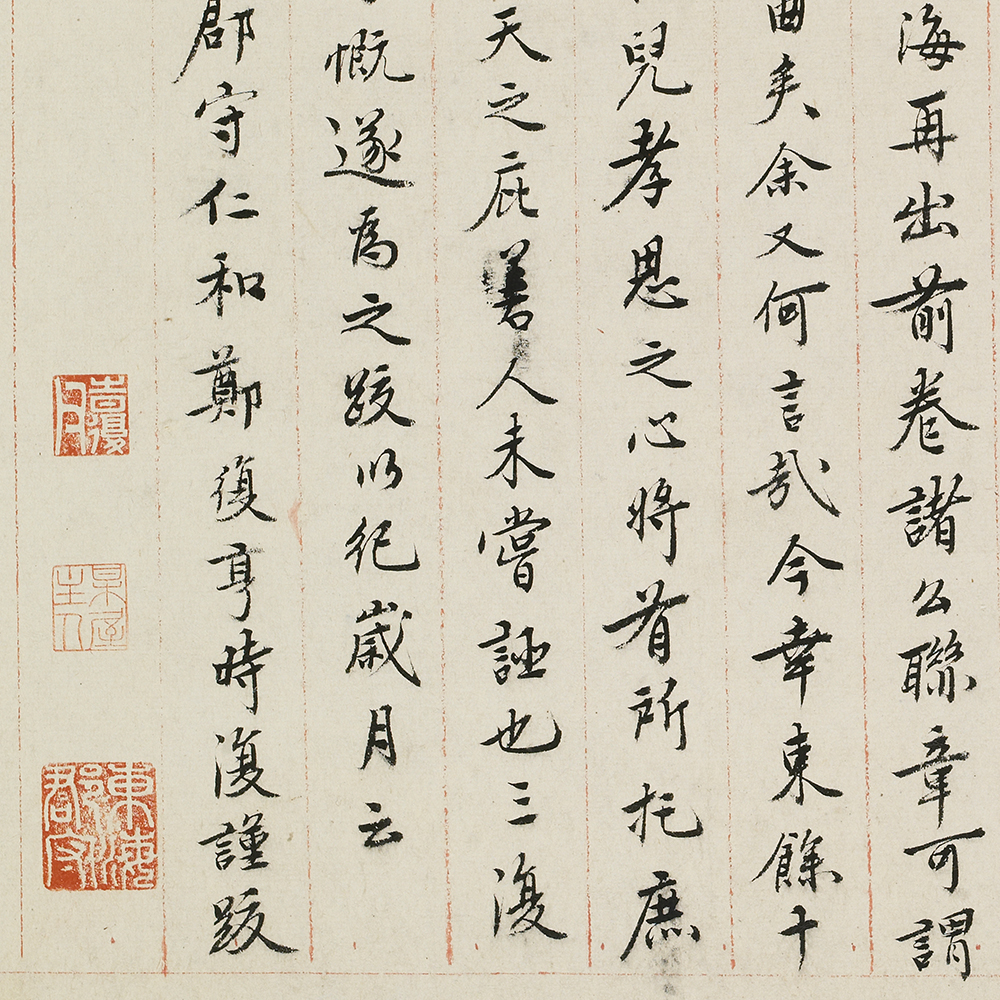 海再出前卷諸公聯章可謂
曲矣余又何言哉今幸東餘十
兒孝思之心將有所托庶
天之庇善人未嘗誣也三復
慨遂為之跋以紀歲月云
郡守仁和鄭復亨時復謹跋
東海郡守